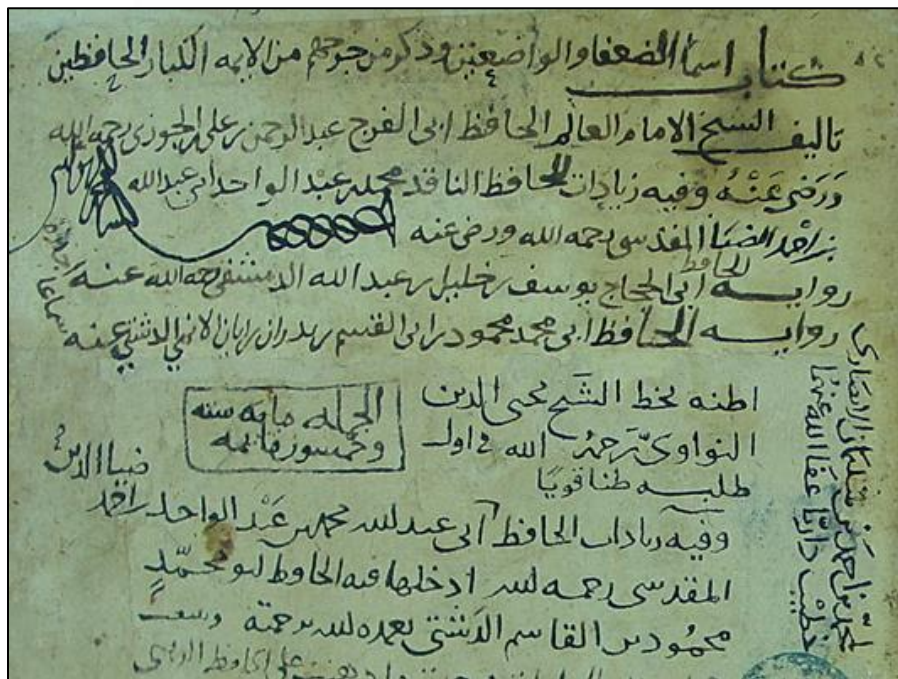 كتاب اسما الضعفا والواضعين وذكر من جرحهم من الايمه الكبار الحافظين
تاليف الشيخ الامام العالم الحافظ ابى الفرج عبد الرحمن بن على بن الجوزى رحمه الله
ورضى عنه وفيه زيادات الحافظ الناقد محمد بن عبد الواحد ابى عبد الله
بن احمد الضيا المقدسى رحمه الله ورضى عنه
روايه الحافظ ابى الحجاج يوسف بن خليل بن عبد الله الدمشقى رحمه الله عنه
روايه الحافظ ابى محمد محمود بن ابى القسم بن بدران بن ابان الدشتى عنه
اظنه بخط الشيخ محيى الدين
النواوى رحمه الله فى اول
طلبه ظنا قويا
الجمله مايه سته
وخمسون قائمه
ضيا الدين
وفيه زيادات الحافظ ابى عبد لله محمد بن عبد الواحد بن احمد
المقدسى رحمه لله ادخلها فيه الحافظ ابو محمد
محمود بن القاسم الدشتى تغمده لله برحمة
لمحمد بن احمد بن سليمان الانصارى
خطيب داريا عفا الله عنهما